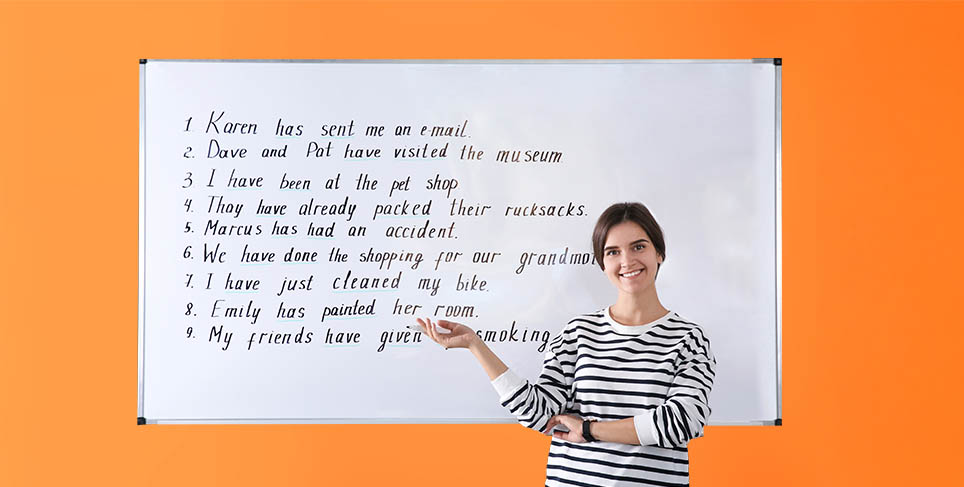 1. Karen has sent me an e-mail.
2. Dave and Pat have visited the museum.
3 I have been at the pet shop.
4. Thay have already packed their rucksacks.
5. Marcus has had an accident.
6. We have done the shopping for our grandmo
7. I have just cleaned my bike.
8. Emily has painted her room.
9. My friends have given smoking.